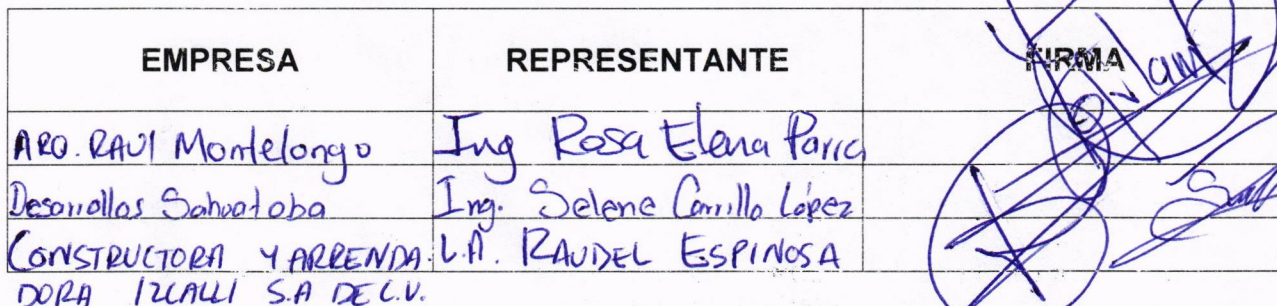 EMPRESA REPRESENTANTE FIRMA
ARQ. RAUl Montelongo Ing Rosa Elena Parra
Desarrollos Sahuatoba Ing. Selene Carrillo López
CONSTRUCTORA Y ARRENDA. L.A. RAUDEL ESPINOSA
DORA IZCALLI S.A DE C.V.